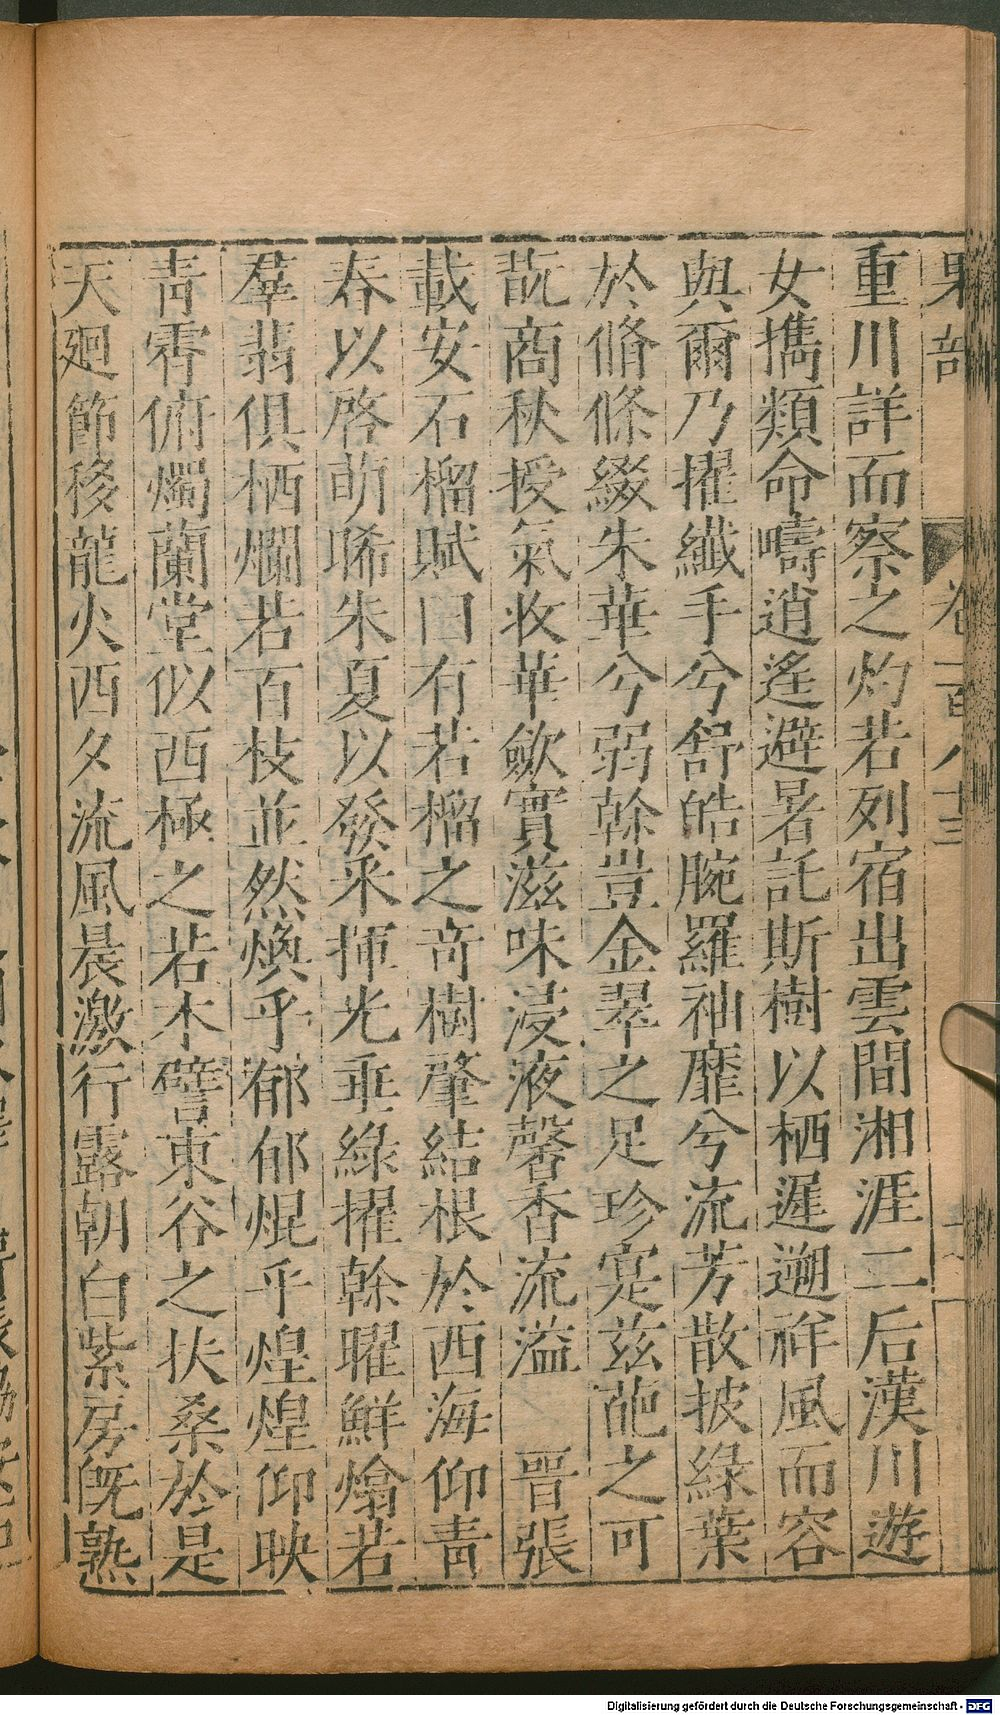 果部 卷一百八十三
重川詳而察之灼若列宿出雲間湘涯二后漢川遊
女擕類命疇逍遙避暑託斯樹以栖遲遡祥風而容
與爾乃擢纖手兮舒皓腕羅袖靡兮流芳散披綠葉
於脩條綴朱華兮弱幹豈金翠之足珍寔茲葩之可
翫商秋授氣收華歛實滋味浸液馨香流溢 晉張
載安石榴賦曰有若榴之奇樹肇結根於西海仰青
春以啓萌晞朱夏以發采揮光垂綠擢幹曜鮮熻若
羣翡俱栖爛若百枝並然煥乎郁郁焜乎煌煌仰映
青霄俯燭蘭堂似西極之若木譬東谷之扶桑於是
天廻節移龍火西夕流風晨激行露朝白紫房旣熟
Digitalisierung gefördert durch die Deutsche Forschungsgemeinschaft - DFG